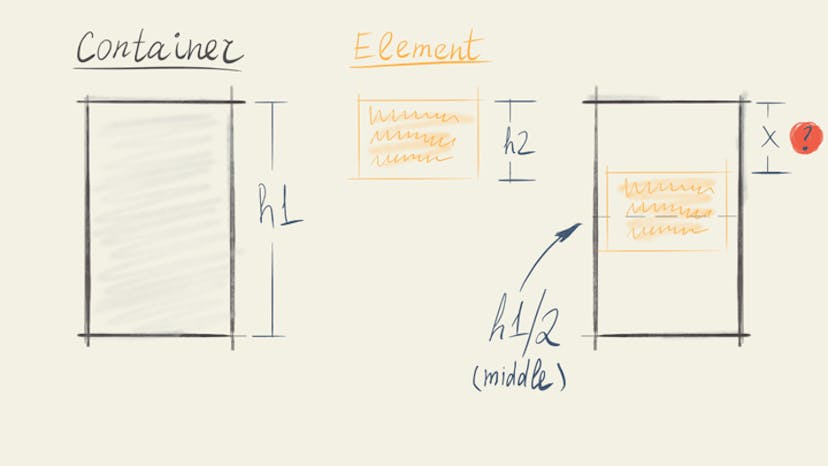 Container
Element
h1
h2
x ?
h1/2
(middle)